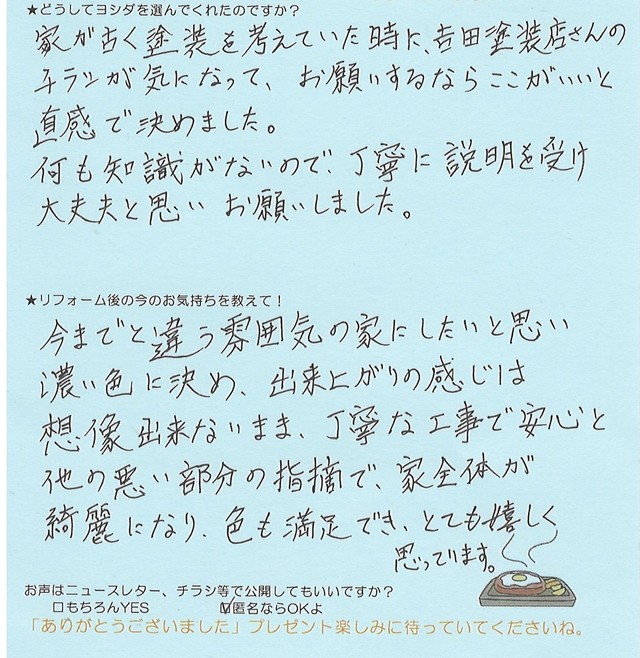 ★どうしてヨシダを選んでくれたのですか？
家が古く塗装を考えていた時に、吉田塗装店さんの
チラシが気になって、お願いするならここがいいと
直感で決めました。
何も知識がないので、丁寧に説明を受け
大丈夫と思いお願いしました。
★リフォーム後の今のお気持ちを教えて！
今までと違う雰囲気の家にしたいと思い
濃い色に決め、出来上がりの感じは
想像出来ないまま、丁寧な工事で安心と
他の悪い部分の指摘で、家全体が
綺麗になり、色も満足でき、とても嬉しく
思っています。
お声はニュースレター、チラシ等で公開してもいいですか？
□もちろんYES ☑匿名ならOKよ
「ありがとうございました」プレゼント楽しみに待っていてくださいね。